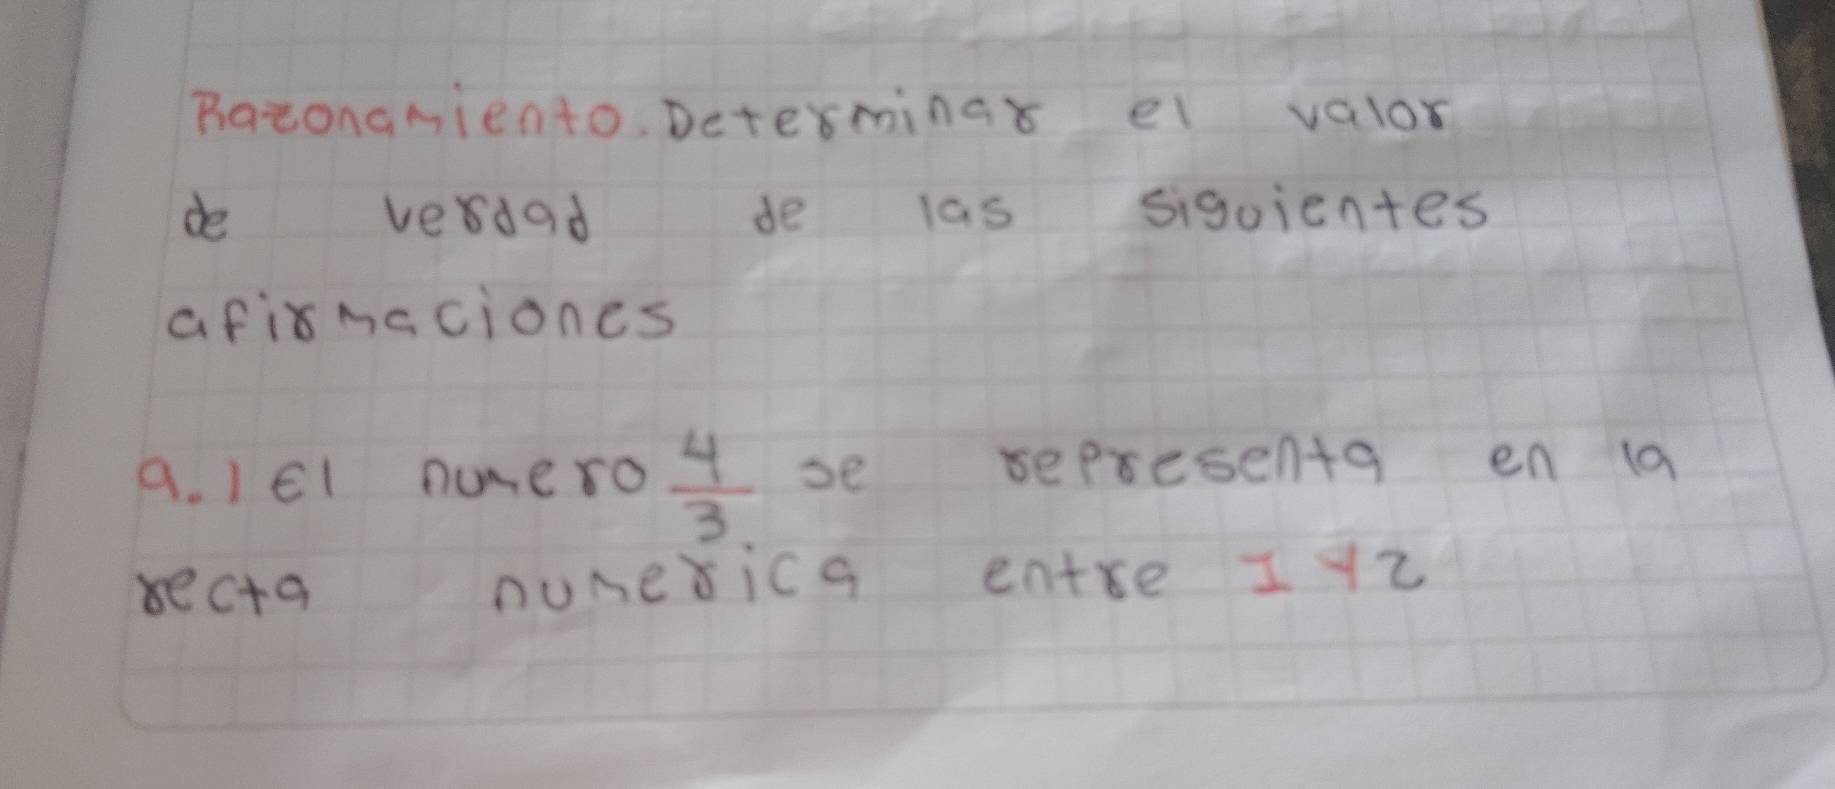 Razonamiento. Determinar el valor
de verdad de las siguientes
afirmaciones
a.) El numero 4/3 se representa en la
recta numerica entre 1 y 2